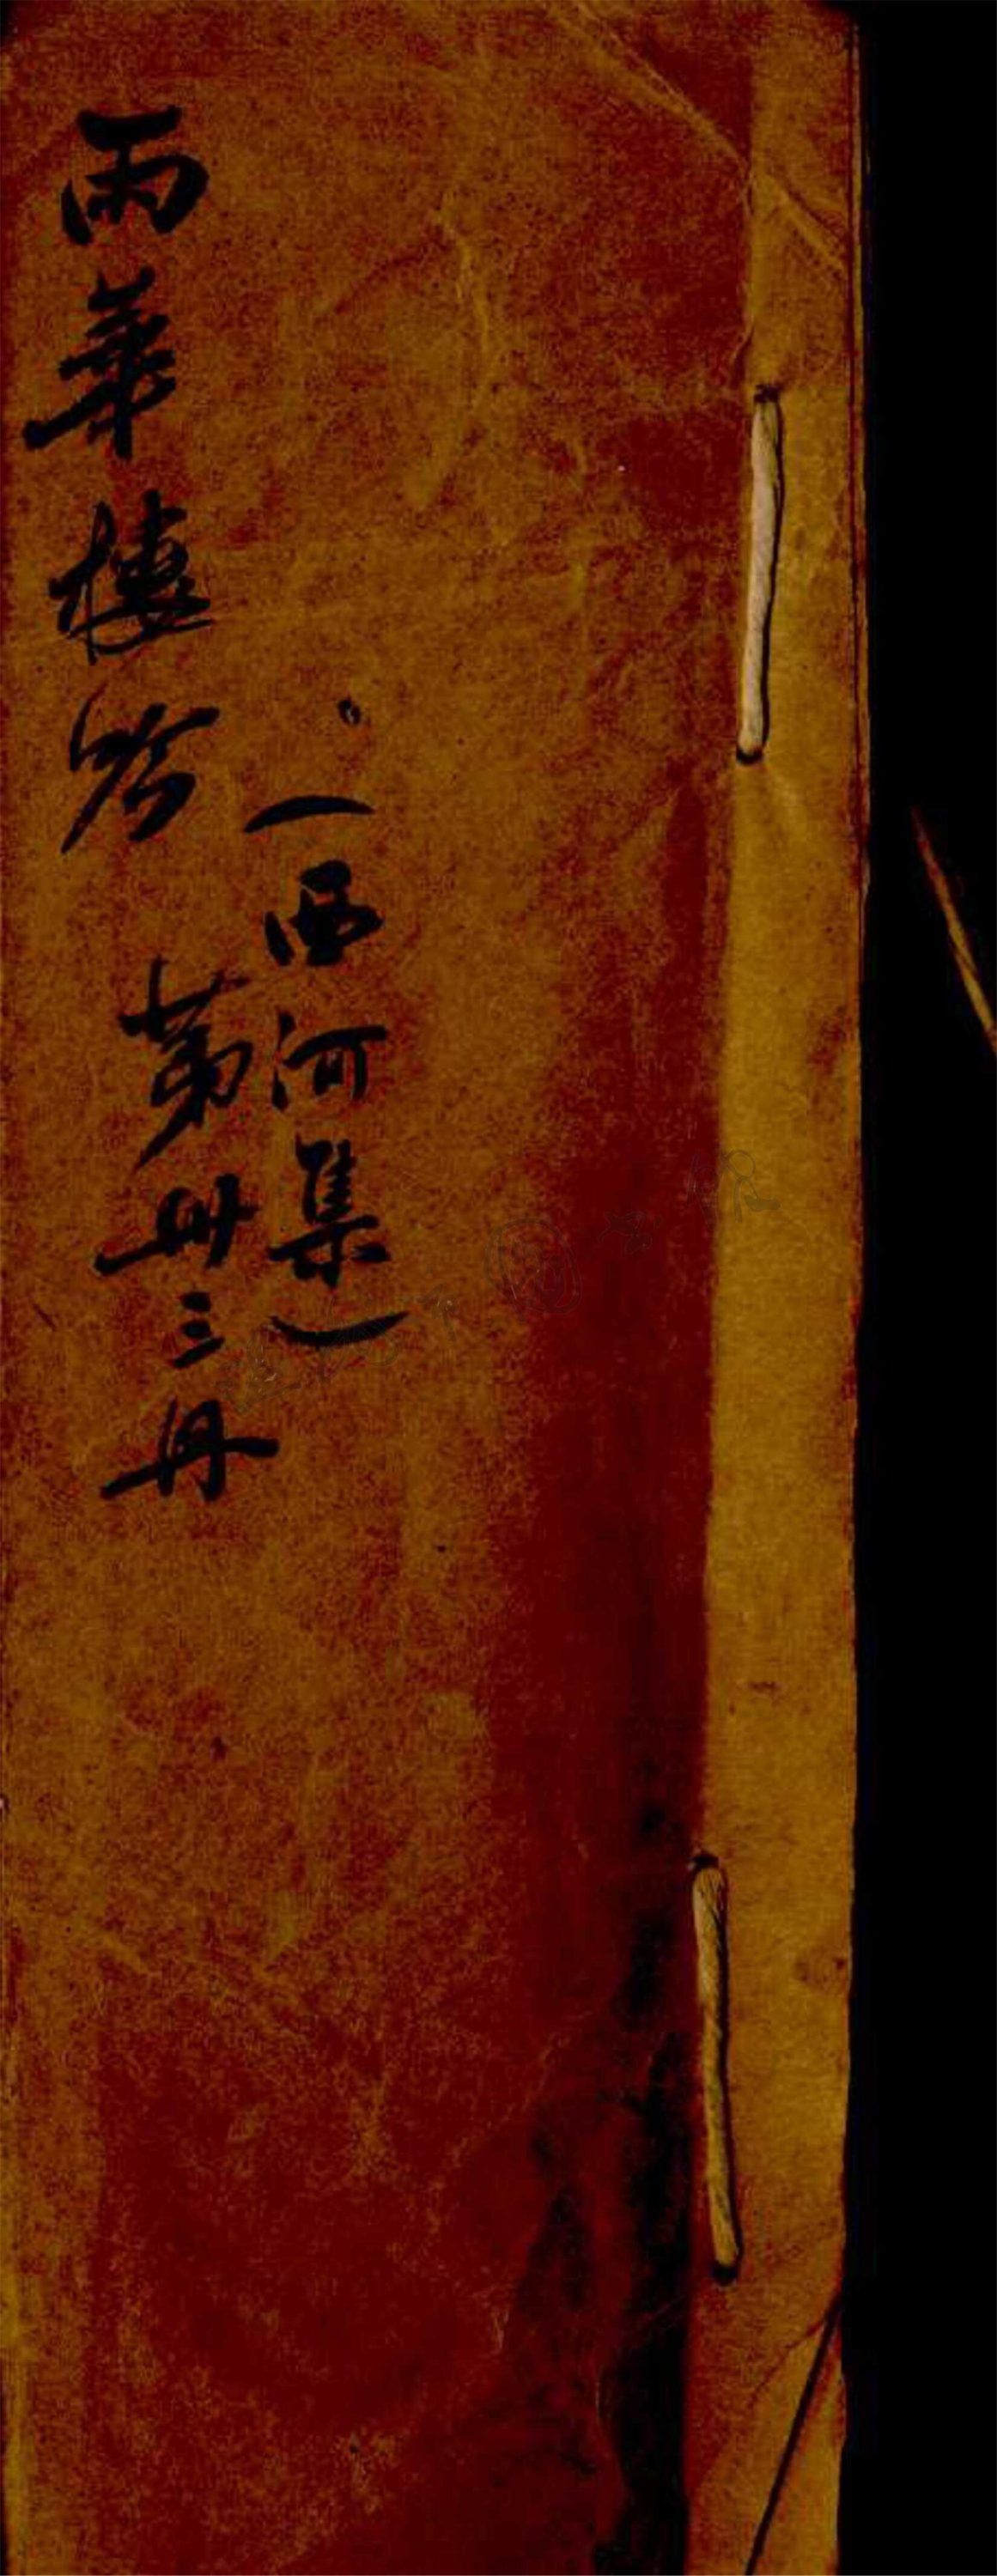 雨華樓吟
(西河集)
第卌三冊